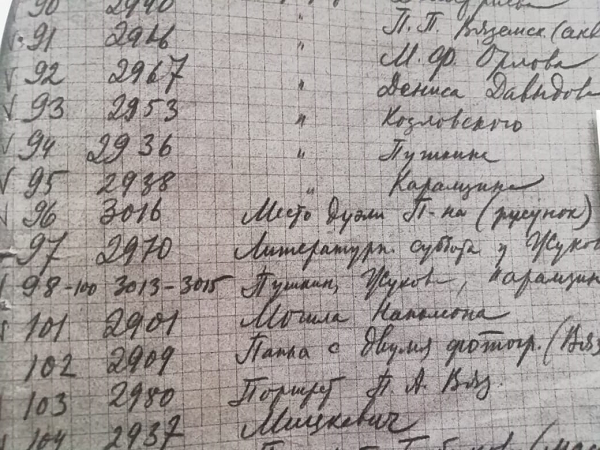 90 2940
91 2916 " П. П. Вяземск (акв
92 2967 " М. Ф. Орлова
93 2953 " Дениса Давыдова
94 2936 " Козловского
95 2938 " Пушкина
" Карамзина
96 3016 Место дуэли П-на (рисунок)
97 2970 Литературн. суббота у Жуков
98-100 3013-3015 Пушкин, Жуков, Карамзин
101 2901 Могила Наполеона
102 2909 Папка с двумя фотогр. (Вяз
103 2980 Портрет П. А. Вяз.
104 2937 Мицкевич